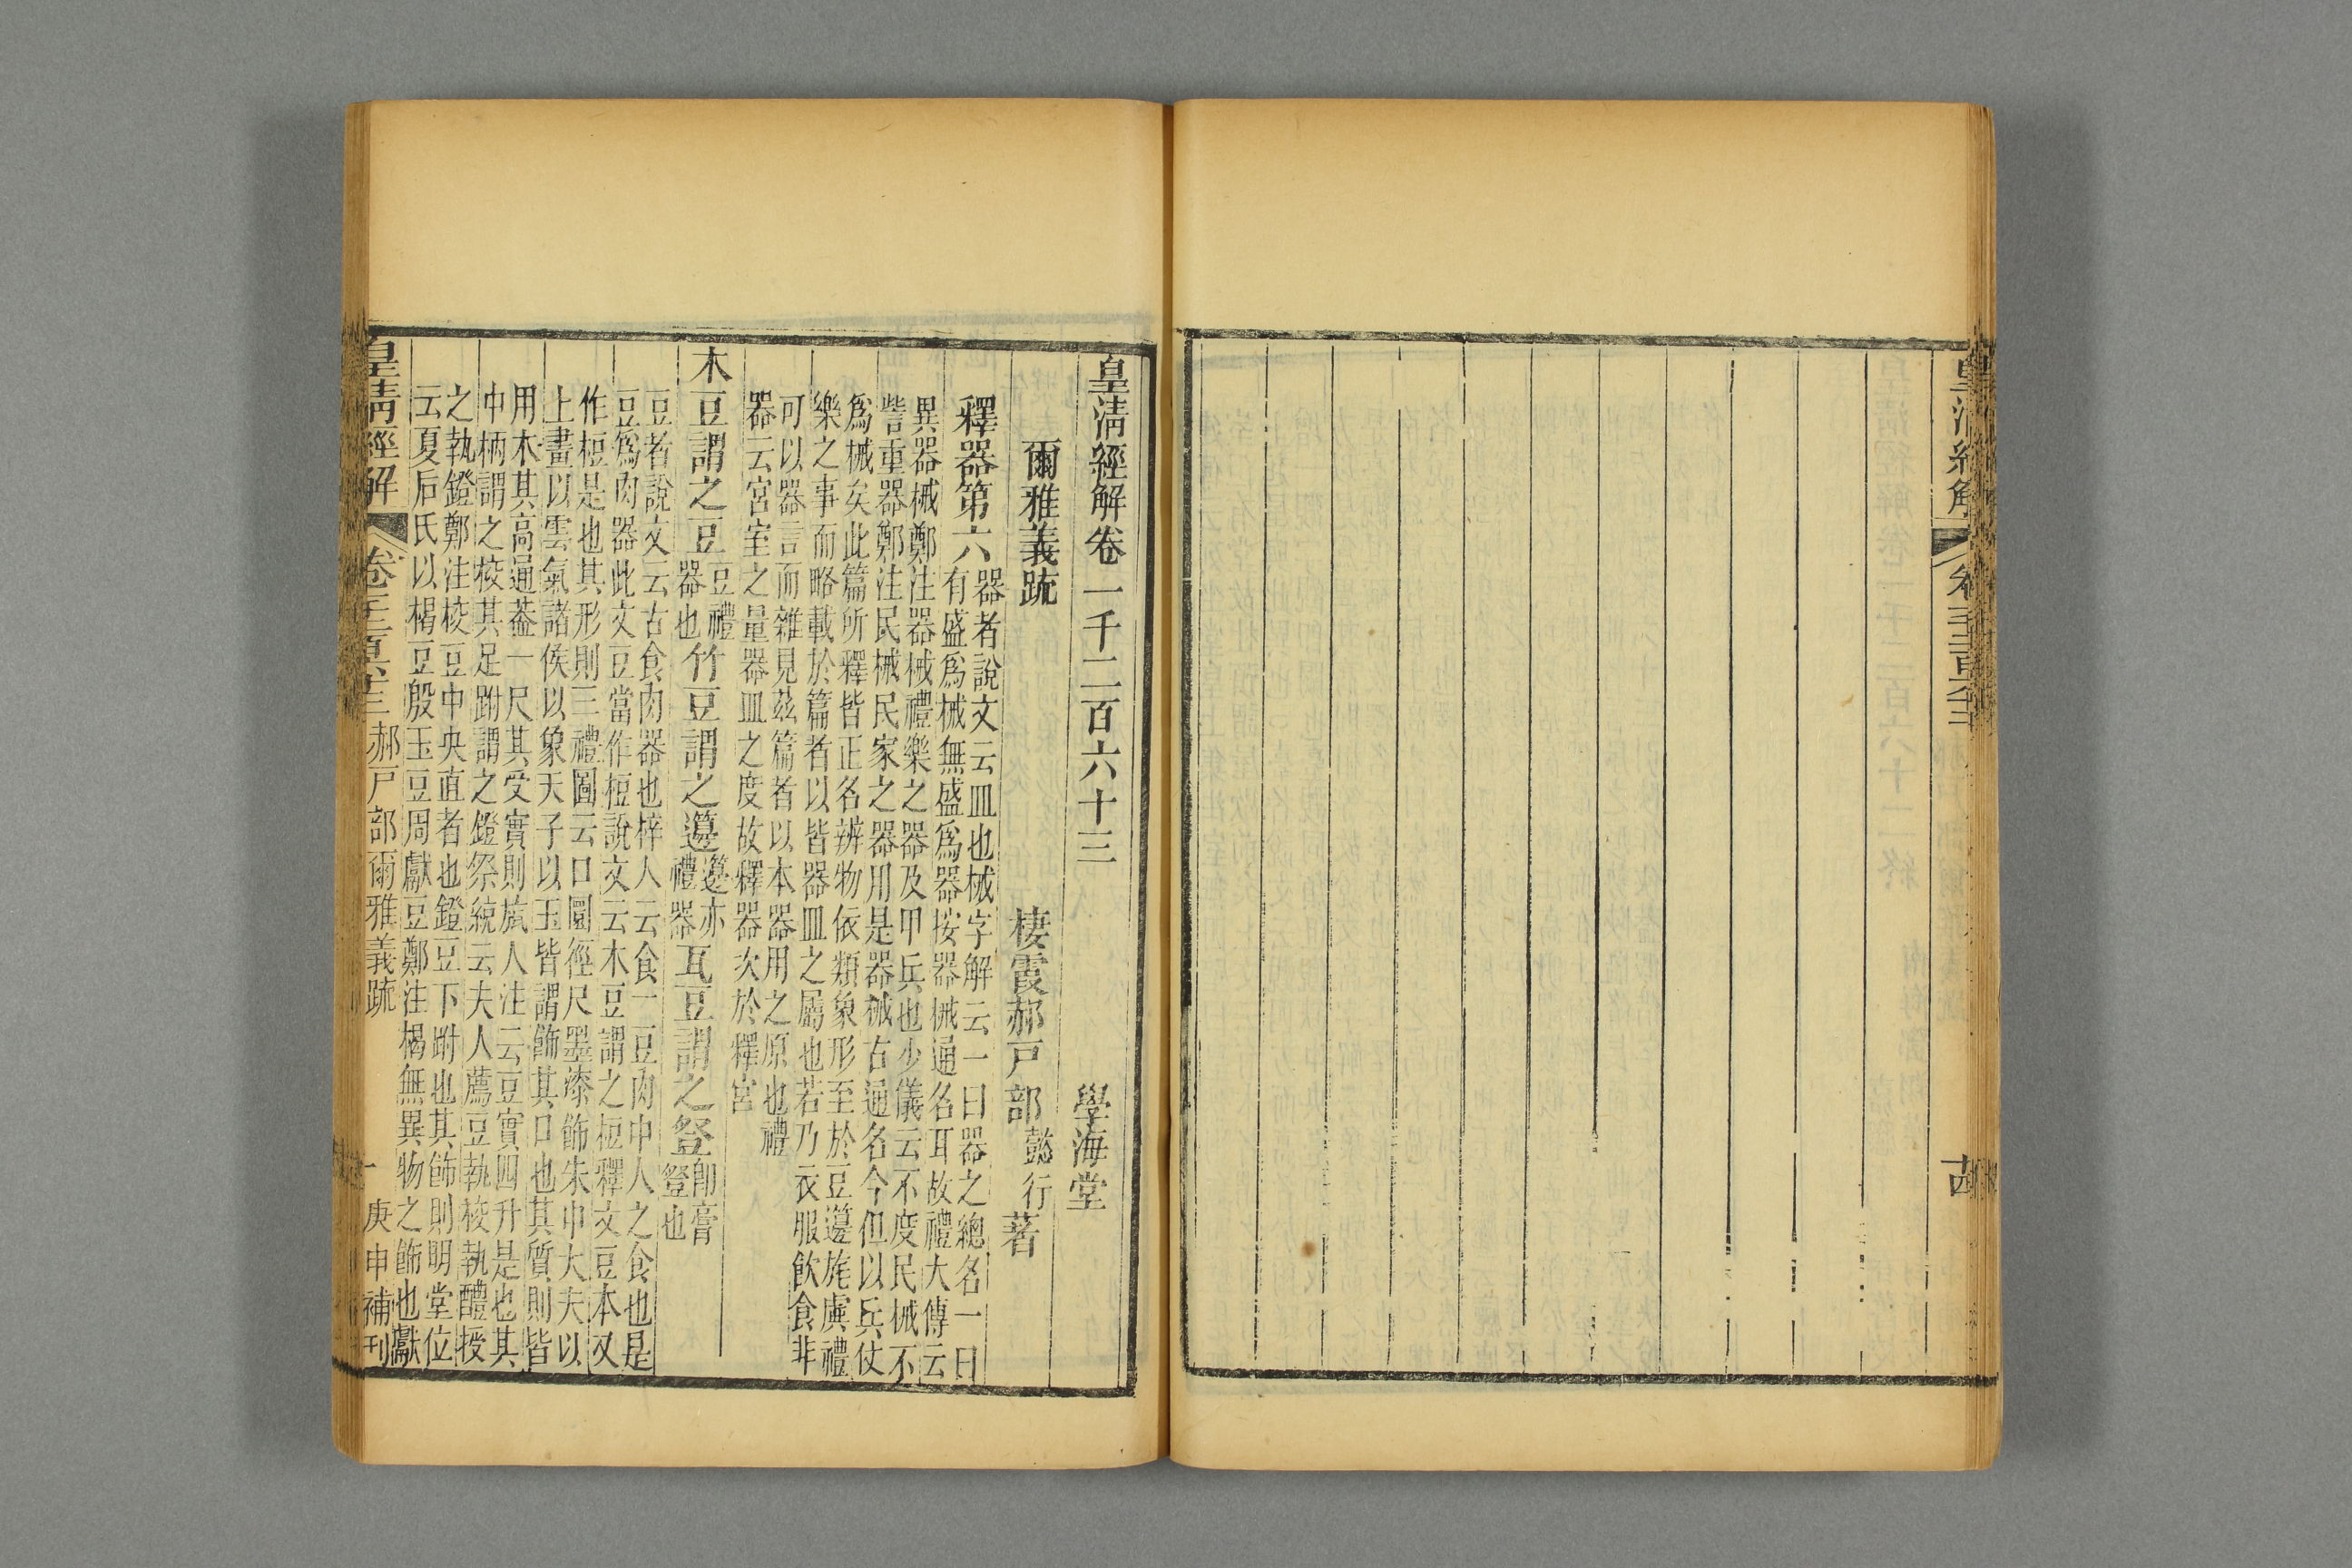 皇清經解
皇清經解卷一千二百六十三 學海堂
爾雅義疏 棲霞郝戸部懿行著
釋器第六 器者說文云皿也械字解云一曰器之總名一曰
有盛爲械無盛爲器按器械通名耳故禮大傳云
異器械鄭注器械禮樂之器及甲兵也少儀云不度民械不
訾重器鄭注民械民家之器用是器械古通名今但以兵仗
爲械矣此篇所釋皆正名辨物依類象形至於豆籩旄虡禮
樂之事而略載於篇者以皆器皿之屬也若乃衣服飲食非
可以器言而雜見茲篇者以本器用之原也禮
器云宮室之量器皿之度故釋器次於釋宮
木豆謂之豆 豆禮器也 竹豆謂之籩 籩亦禮器 瓦豆謂之登 卽膏登也
豆者說文云古食肉器也梓人云食一豆肉中人之食也是
豆爲肉器此文豆當作梪說文云木豆謂之梪釋文豆本又
作梪是也其形則三禮圖云口圓徑尺墨漆飾朱中大夫以
上畫以雲氣諸侯以象天子以玉皆謂飾其口也其質則皆
用木其高通葢一尺其受實則旊人注云豆實四升是也其
中柄謂之校其足跗謂之鐙祭統云夫人薦豆執校執醴授
之執鐙鄭注校豆中央直者也鐙豆下跗也其飾則明堂位
云夏后氏以楬豆殷玉豆周獻豆鄭注楬無異物之飾也獻
皇清經解 卷 郝戸部爾雅義疏 一 庚申補刊